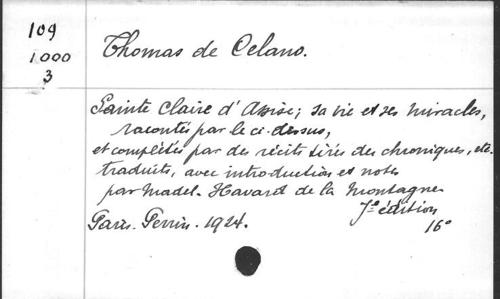 109
1000
3
Thomas de Celano.
Sainte Claire d'Assise; sa vie et ses miracles,
racontés par le ci-dessus,
et complétés par des récits tirés des chroniques, etc.
traduits, avec introduction et notes
par Madel. Havard de la Montagne
7e édition
Paris. Perrin. 1924.
16°